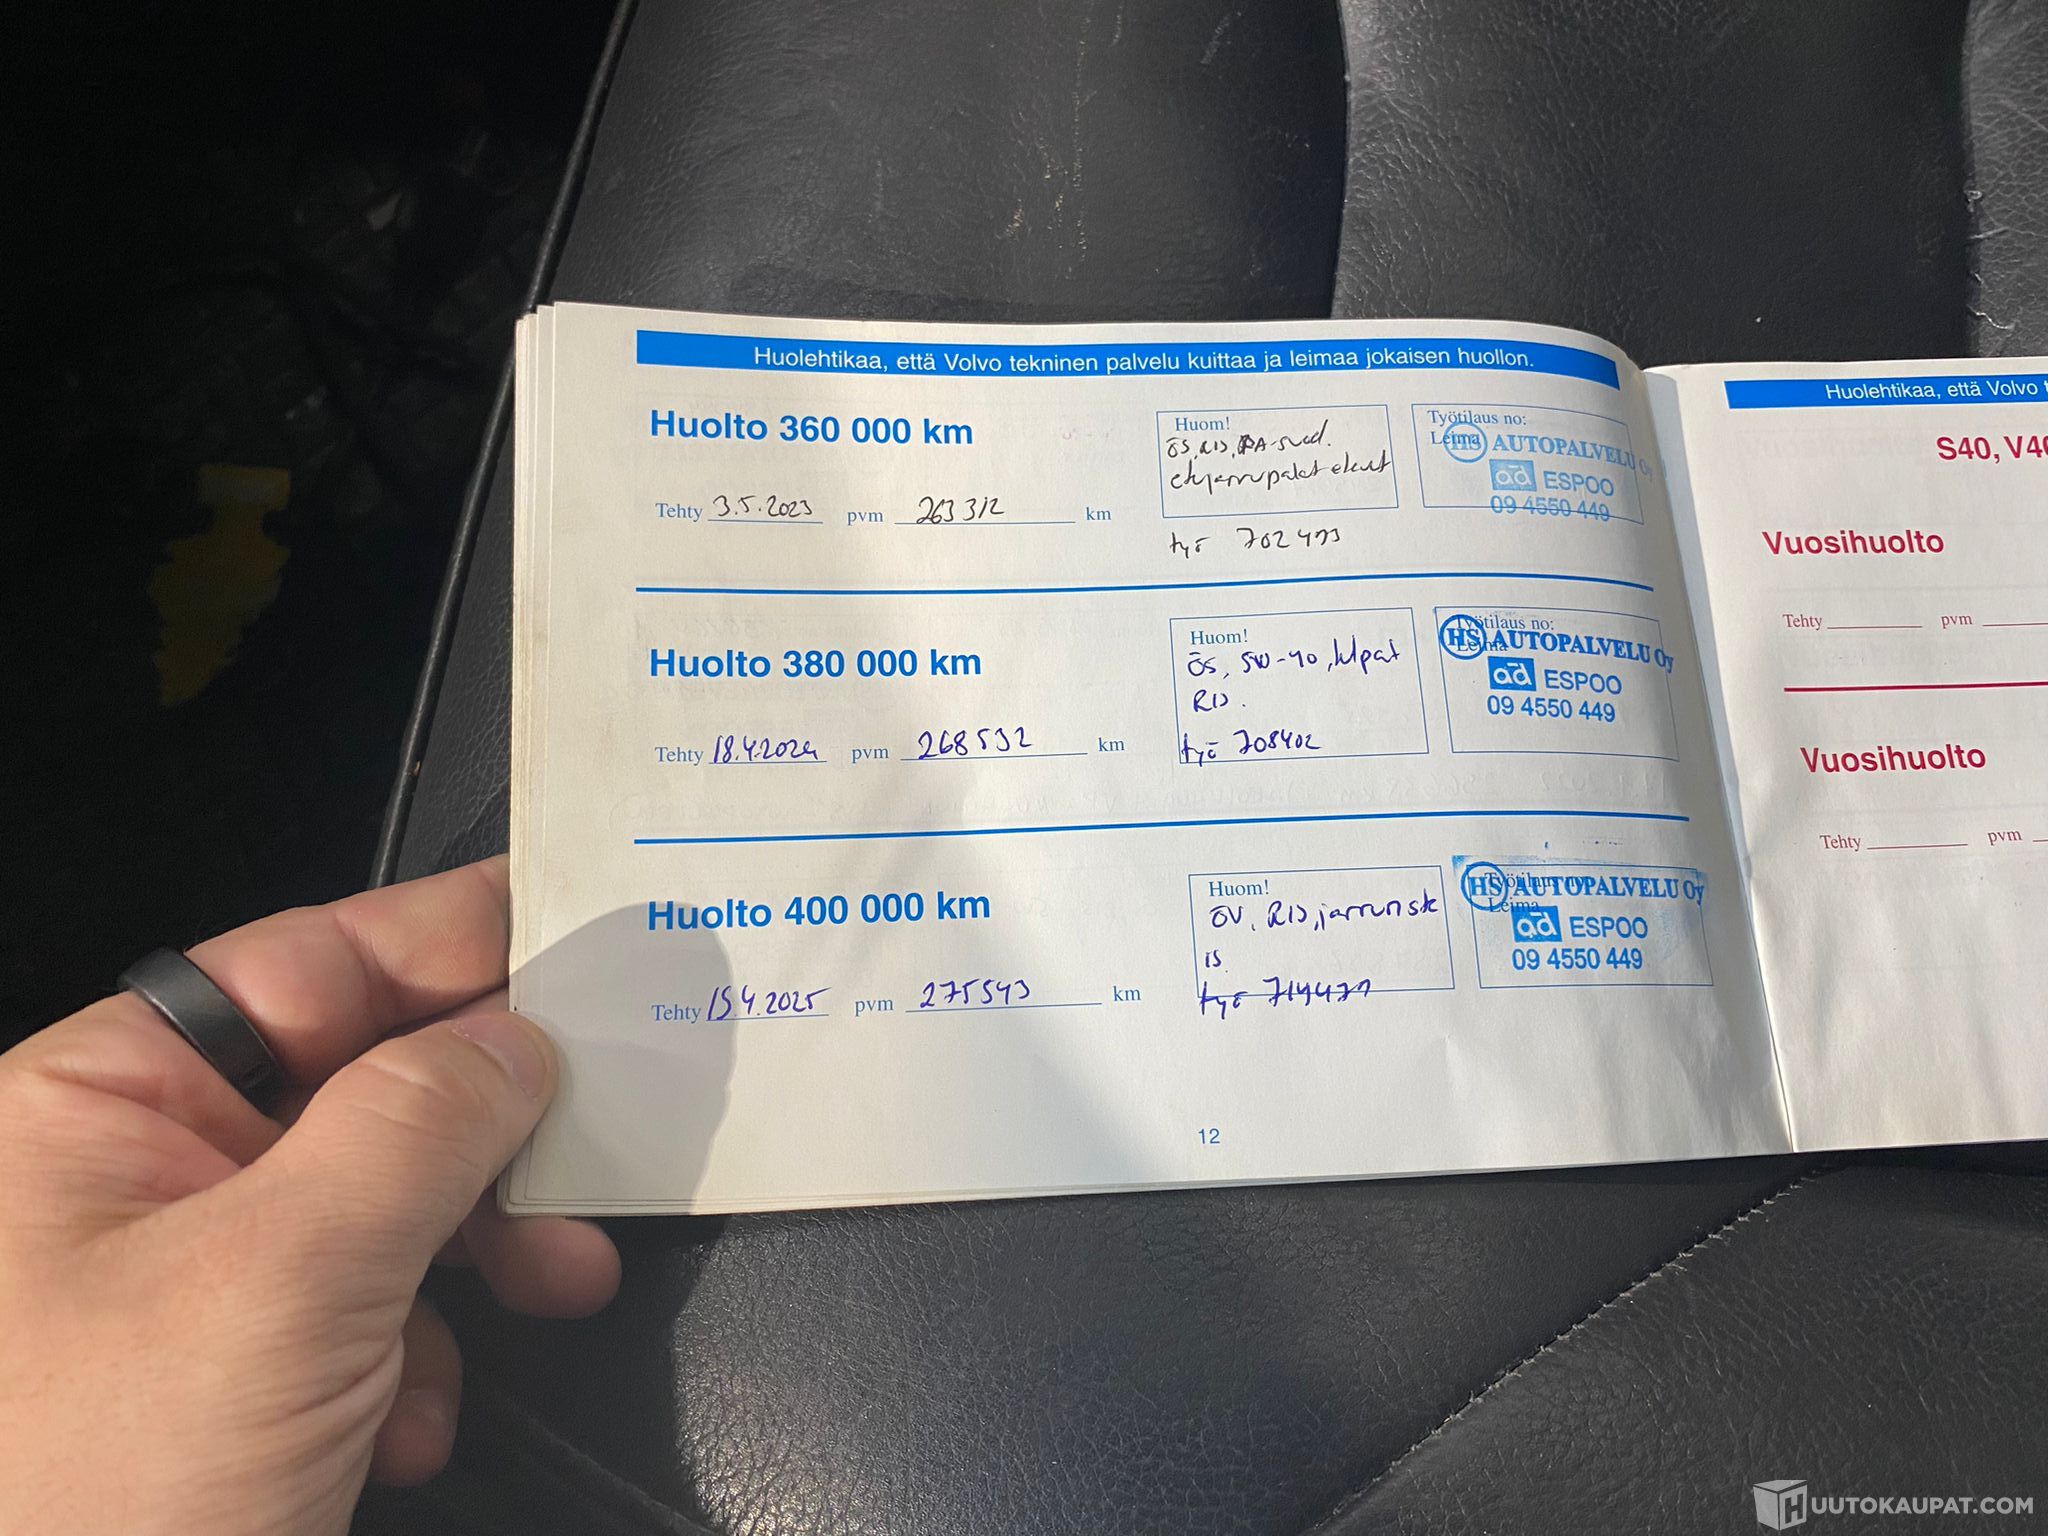 Huolehtikaa, että Volvo tekninen palvelu kuittaa ja leimaa jokaisen huollon.
Huolto 360 000 km
Huom!
ÖS, RIS,
etujarrupalat etuet
Työtilaus no:
Leima
HS AUTOPALVELU Oy
ad ESPOO
09 4550 449
Tehty 3.5.2023 pvm 263 312 km
työ 702493
Huolto 380 000 km
Huom!
ÖS, 5W-40, klpat
RIS.
työ 708402
Työtilaus no:
Leima
HS AUTOPALVELU Oy
ad ESPOO
09 4550 449
Tehty 18.4.2024 pvm 268 532 km
Huolto 400 000 km
Huom!
ÖV, RIS, jarrunste
is
työ 714471
Työtilaus no:
Leima
HS AUTOPALVELU Oy
ad ESPOO
09 4550 449
Tehty 15.4.2025 pvm 275543 km
12
Huolehtikaa, että Volvo
S40, V40
Vuosihuolto
Tehty pvm
Vuosihuolto
Tehty pvm
HUUTOKAUPAT.COM